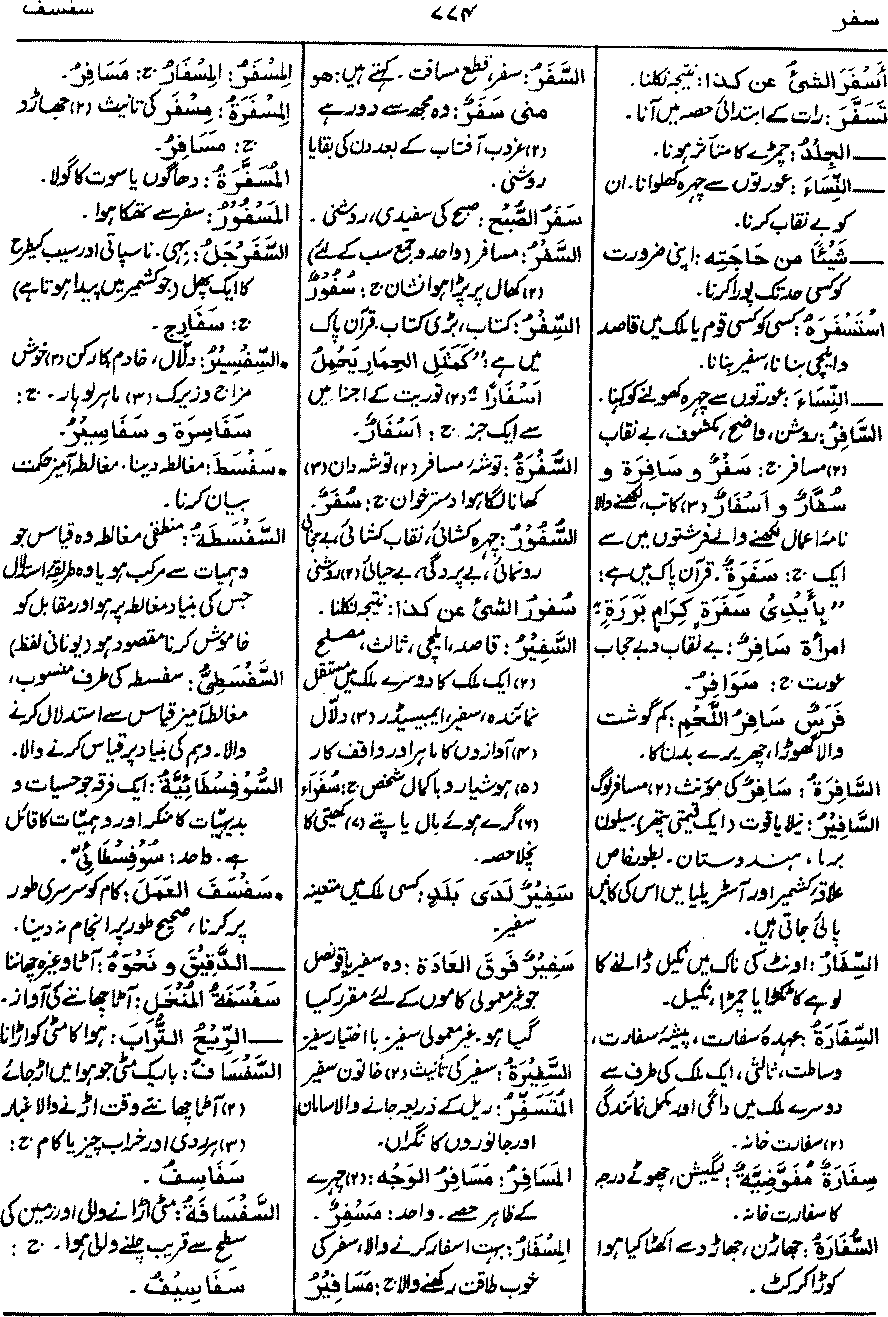 سفر
۷۷۴
سفسف
أَسْفَرَ الشیُٔ عن كذا: نتیجہ نکلنا۔
تَسَفَّرَ: رات کے ابتدائی حصہ میں آنا۔
— الجِلْدُ: چمڑے کا متأثر ہونا۔
— النِّسَاءَ: عورتوں سے چہرہ کھلوانا۔ ان
کو بے نقاب کرنا۔
— شَیْئًا من حَاجَتِه: اپنی ضرورت
کو کسی حد تک پورا کرنا۔
اسْتَسْفَرَهُ: کسی کو کسی قوم یا ملک میں قاصد
و ایلچی بنانا، سفیر بنانا۔
— النِّسَاءَ: عورتوں سے چہرہ کھولنے کو کہنا۔
السَّافِرُ: روشن، واضح، مکشوف، بے نقاب
(۲) مسافر ج: سَفْرٌ و سَافِرَة و
سُفَّارٌ و اَسْفَارٌ (۳) کاتب، لکھنے والا
نامۂ اعمال لکھنے والے فرشتوں میں سے
ایک ج: سَفَرَةٌ۔ قرآن پاک میں ہے:
”بِأَيْدِیْ سَفَرَةٍ كِرَامٍ بَرَرَةٍ“
امرأة سَافِرٌ: بے نقاب و بے حجاب
عورت ج: سَوَافِرُ۔
فَرَسٌ سَافِرُ اللَّحْمِ: کم گوشت
والا گھوڑا، چھریرے بدن کا۔
السَّافِرَةُ: سَافِرٌ کی مؤنث (۲) مسافر لوگ
السَّافِيْرُ: نیلا یاقوت (ایک قیمتی پتھر) سیلون
برما، ہندوستان۔ بطور خاص
علاقۂ کشمیر اور آسٹریلیا میں اس کی کانیں
پائی جاتی ہیں۔
السِّفَارُ: اونٹ کی ناک میں نکیل ڈالنے کا
لوہے کا ٹکڑا یا چمڑا، نکیل۔
السِّفَارَةُ: عہدۂ سفارت، پیشۂ سفارت،
وساطت، ثالثی، ایک ملک کی طرف سے
دوسرے ملک میں دائمی اور مکمل نمائندگی
(۲) سفارت خانہ۔
سِفَارَةٌ مُفَوَّضِيَّةٌ: لیگیشن، چھوٹے درجہ
کا سفارت خانہ۔
السُّفَارَةُ: جھاڑن، جھاڑو سے اکٹھا کیا ہوا
کوڑا کرکٹ۔
السَّفَرُ: سفر، قطع مسافت۔ کہتے ہیں: هو
منی سَفَرٌ: وہ مجھ سے دور ہے
(۲) غروب آفتاب کے بعد دن کی بقایا
روشنی۔
سَفَرُ الصُّبْحِ: صبح کی سفیدی، روشنی۔
السَّفْرُ: مسافر (واحد و جمع سب کے لئے)
(۲) کھال پر پڑا ہوا نشان ج: سُفُورٌ
السِّفْرُ: کتاب، بڑی کتاب۔ قرآن پاک
میں ہے: ”كَمَثَلِ الحِمَارِ يَحْمِلُ
اَسْفَارًا“ (۲) توریت کے اجزا میں
سے ایک جز۔ ج: اَسْفَارٌ۔
السُّفْرَةُ: توشۂ مسافر (۲) توشہ دان (۳)
کھانا لگا ہوا دسترخوان ج: سُفَرٌ۔
السُّفُوْرُ: چہرہ کشائی، نقاب کشائی، بے حجابی
رونمائی، بے پردگی، بے حیائی (۲) روشنی
سُفورُ الشئ عن كذا: نتیجہ نکلنا۔
السَّفِيْرُ: قاصد، ایلچی، ثالث، مصلح
(۲) ایک ملک کا دوسرے ملک میں مستقل
نمائندہ، سفیر، ایمبیسیڈر (۳) دلّال
(۴) آوازوں کا ماہر اور واقف کار
(۵) ہوشیار و باکمال شخص ج: سُفَرَاء
(۶) گرے ہوئے بال یا پتے (۷) کھیتی کا
نچلا حصہ۔
سَفِيْرٌ لَدَى بَلَدٍ: کسی ملک میں متعینہ
سفیر۔
سَفِيْرٌ فَوقَ العَادَة: وہ سفیر یا قونصل
جو غیر معمولی کاموں کے لئے مقرر کیا
گیا ہو۔ غیر معمولی سفیر۔ با اختیار سفیر
السَّفِيْرَةُ: سفیر کی تانیث (۲) خاتون سفیر
المُتَسَفِّرُ: ریل کے ذریعہ جانے والا سامان
اور جانوروں کا نگراں۔
المَسَافِرُ: مَسَافِرُ الوَجْه: (۲) چہرے
کے ظاہر حصے۔ واحد: مَسْفِرٌ۔
المِسْفَارُ: بہت اسفار کرنے والا، سفر کی
خوب طاقت رکھنے والا ج: مَسَافِيْرُ
المِسْفَرُ: المِسْفَارُ ج: مَسَافِرُ۔
المِسْفَرَةُ: مِسْفَر کی تانیث (۲) جھاڑو
ج: مَسَافِرُ۔
المُسَفَّرَةُ: دھاگوں یا سوت کا گولا۔
المَسْفُوْرُ: سفر سے تھکا ہوا۔
السَّفَرْجَلُ: بہی۔ ناسپاتی اور سیب کیطرح
کا ایک پھل (جو کشمیر میں پیدا ہوتا ہے)
ج: سَفَارِج۔
• السِّفْسِيْرُ: دلّال، خادم کارکن (۲) خوش
مزاج و زیرک (۳) ماہر لوہار۔ ج:
سَفَاسِرَة و سَفَاسِيْرُ۔
• سَفْسَطَ: مغالطہ دینا۔ مغالطہ آمیز حکمت
بیان کرنا۔
السَّفْسَطَةُ: منطقی مغالطہ وہ قیاس جو
وہمیات سے مرکب ہو یا وہ طریقۂ استدلال
جس کی بنیاد مغالطہ پر ہو اور مقابل کو
خاموش کرنا مقصود ہو (یونانی لفظ)
السَّفْسَطِيُّ: سفسطہ کی طرف منسوب،
مغالطہ آمیز قیاس سے استدلال کرنے
والا۔ وہم کی بنیاد پر قیاس کرنے والا۔
السُّوْفِسْطَائِيَّةُ: ایک فرقہ جو حسیات و
بدیہیات کا منکر اور وہمیات کا قائل
ہے۔ واحد: سُوْفِسْطَائِيٌّ۔
• سَفْسَفَ العَمَلَ: کام کو سرسری طور
پر کرنا، صحیح طور پر انجام نہ دینا۔
— الدَّقِيْقَ و نَحْوَهُ: آٹا وغیرہ چھاننا
سَفْسَفَةُ المُنْخُلِ: آٹا چھاننے کی آواز۔
— الرِّيْحُ التُّرَابَ: ہوا کا مٹی کو اڑانا
السَّفْسَافُ: باریک مٹی جو ہوا میں اڑ جائے
(۲) آٹا چھانتے وقت اڑنے والا غبار
(۳) ہر ردی اور خراب چیز یا کام ج:
سَفَاسِفُ۔
السَّفْسَافَةُ: مٹی اڑانے والی اور زمین کی
سطح سے قریب چلنے والی ہوا۔ ج:
سَفَاسِيْفُ۔